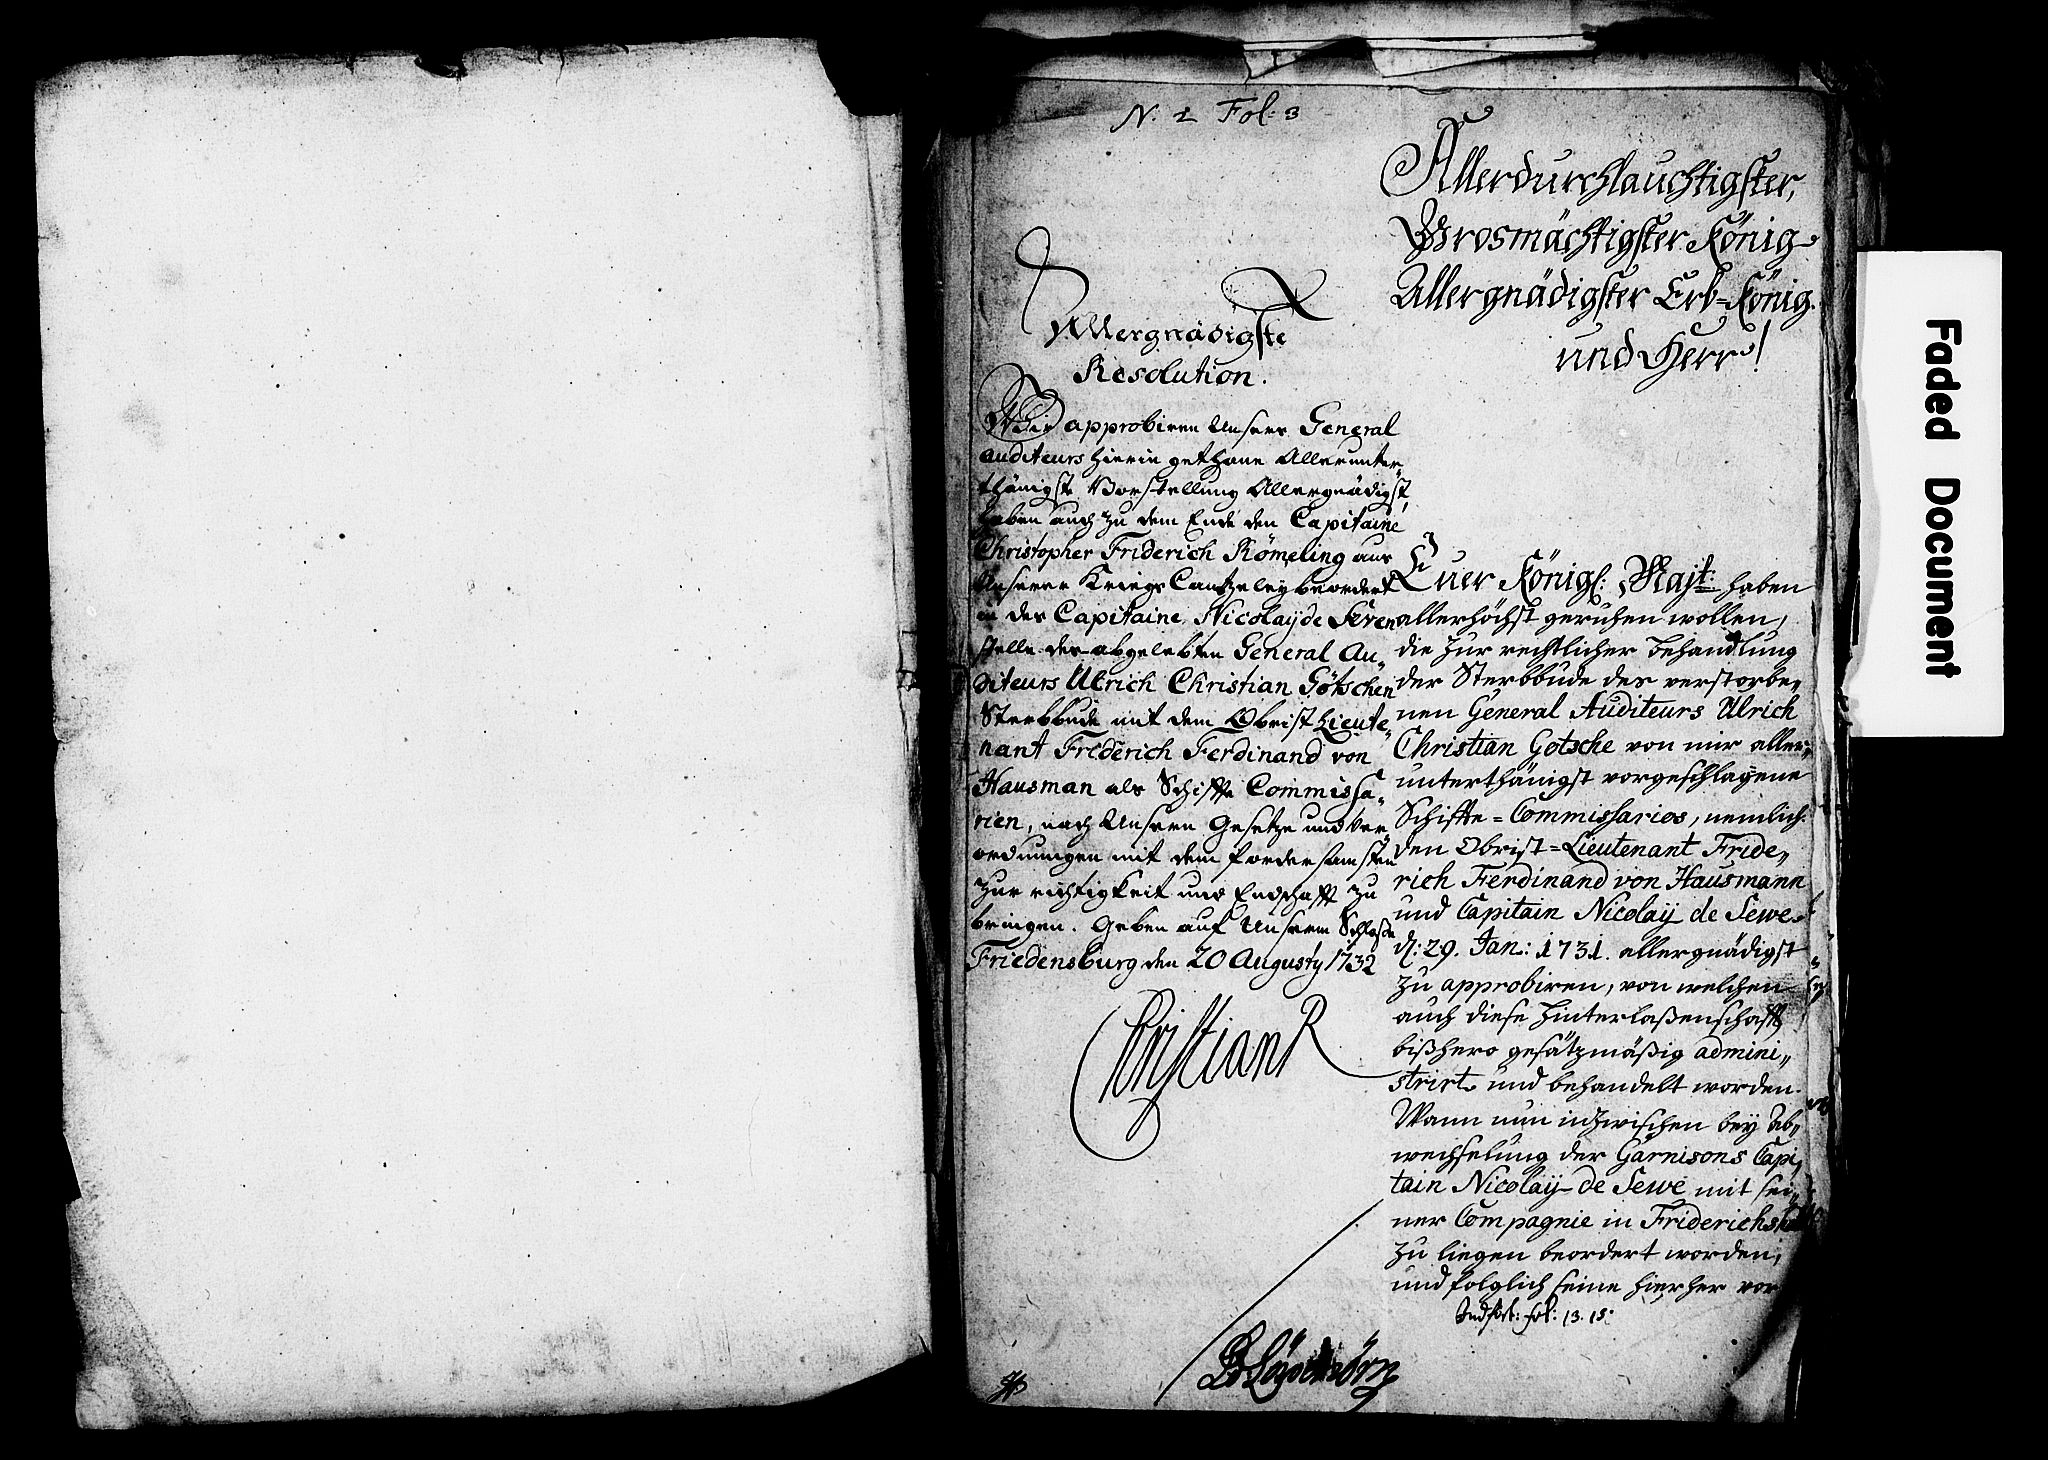 N: 1 Fol: 3
Allergnädigste
Resolution.
Wir approbiren Unsers General
Auditeurs hierin gethane Allerunter„
thänigste Vorstellung Allergnädigst,
haben auch zu dem Ende den Capitaine
Christopher Friderich Römeling aus
Unserer Kriegs Cantzeley beordert
in des Capitaine Nicolaÿ de Seven
stelle des abgelebten General Au„
diteurs Ulrich Christian Götschen
Sterbbude mit dem Obrist Lieute„
nant Friderich Ferdinand von
Hausman als Schiffts Commissa„
rien, nach Unsern Gesetze und Ver„
ordnungen mit dem fordersamsten
zur richtigkeit und Endschafft zu
bringen. Geben auf Unserm Schloße
Friedensburg den 20 Augusty 1732
Christian R
Allerdurchlauchtigster,
Grosmächtigster König
Allergnädigster Erb=König
und Herr!
Euer Königl: Majt: haben
allerhöchst geruhen wollen,
die zur rechtlicher behandlung
der Sterbbude des verstorbe„
nen General Auditeurs Ulrich
Christian Gotsche von mir aller„
unterthänigst vorgeschlagene
Schiffts=Commissarios, nemlich
den Obrist=Lieutenant Fride„
rich Ferdinand von Hausmann
und Capitain Nicolaÿ de Sewe
d: 29. Jan: 1731. allergnädigst
zu approbiren, von welchen
auch diese Hinterlaßenschafft
bißhero gesätzmäßig admini„
strirt und behandelt worden.
Wann nun inzwischen bey Ab„
wechselung der Garnisons Capi„
tain Nicolaÿ de Sewe mit sei„
ner Compagnie in Friderichshall
zu liegen beordert worden,
und folglich seine hierher vor
fol: 13. 15: